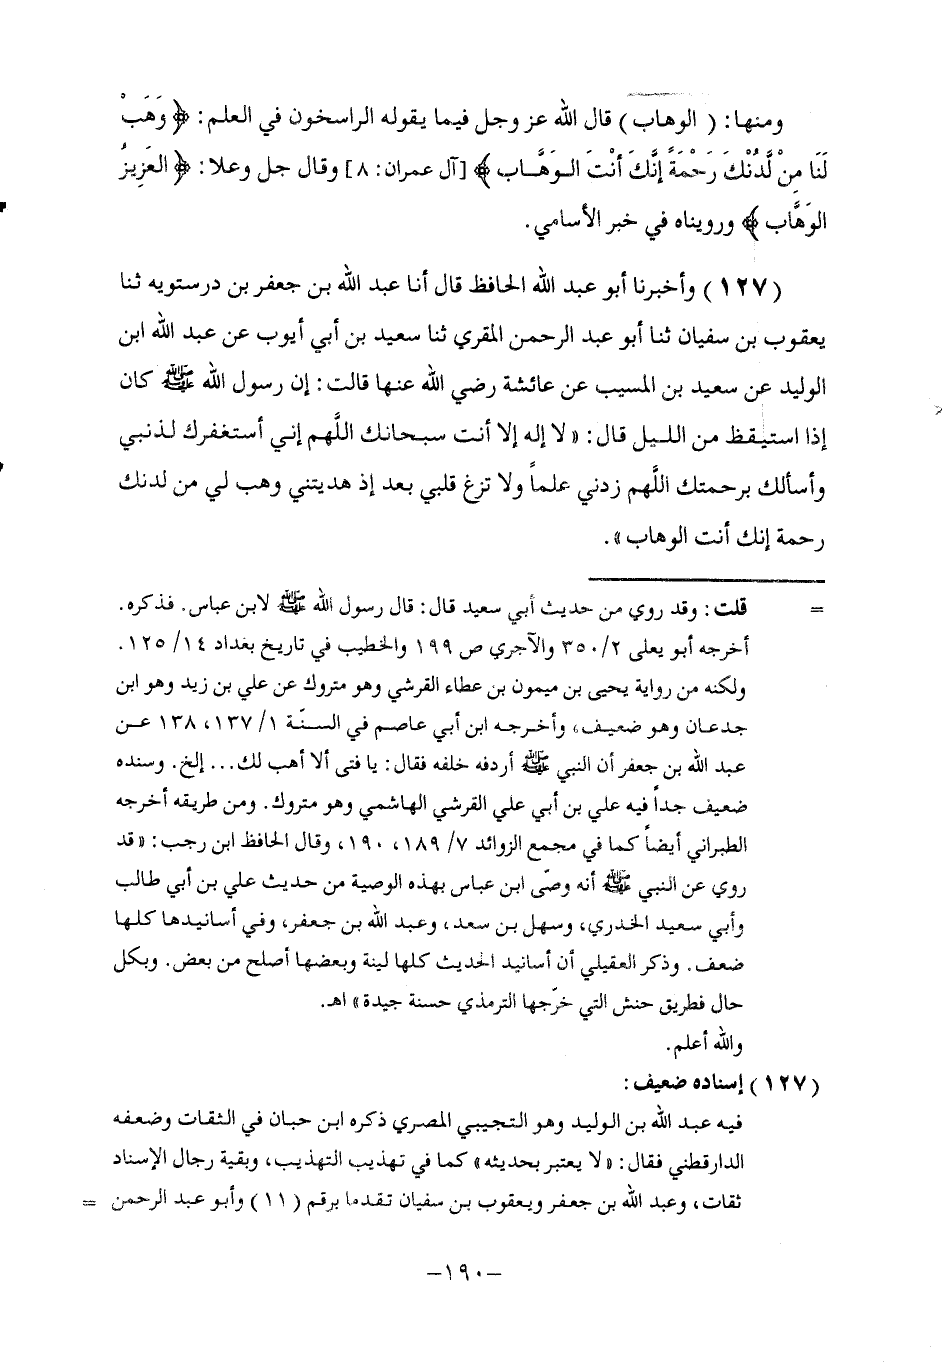 ومنها: ( الوهاب ) قال الله عز وجل فيما يقوله الراسخون في العلم: ﴿ وَهَبْ
لَنَا مِنْ لَّدُنْكَ رَحْمَةً إِنَّكَ أَنْتَ الوَهَّاب ﴾ [آل عمران: ٨] وقال جل وعلا: ﴿ العَزِيزُ
الوَهَّاب ﴾ ورويناه في خبر الأسامي.
(١٢٧) وأخبرنا أبو عبد الله الحافظ قال أنا عبد الله بن جعفر بن درستويه ثنا
يعقوب بن سفيان ثنا أبو عبد الرحمن المقري ثنا سعيد بن أبي أيوب عن عبد الله ابن
الوليد عن سعيد بن المسيب عن عائشة رضي الله عنها قالت: إن رسول الله ﷺ كان
إذا استيقظ من الليل قال: « لا إله إلا أنت سبحانك اللَّهم إني أستغفرك لذنبي
وأسألك برحمتك اللَّهم زدني علماً ولا تزغ قلبي بعد إذ هديتني وهب لي من لدنك
رحمة إنك أنت الوهاب ».
= قلت: وقد روي من حديث أبي سعيد قال: قال رسول الله ﷺ لابن عباس. فذكره.
أخرجه أبو يعلى ٢/ ٣٥٠ والآجري ص ١٩٩ والخطيب في تاريخ بغداد ١٤/ ١٢٥.
ولكنه من رواية يحيى بن ميمون بن عطاء القرشي وهو متروك عن علي بن زيد وهو ابن
جدعان وهو ضعيف، وأخرجه ابن أبي عاصم في السنّة ١/ ١٣٧، ١٣٨ عن
عبد الله بن جعفر أن النبي ﷺ أردفه خلفه فقال: يا فتى ألا أهب لك... إلخ. وسنده
ضعيف جداً فيه علي بن أبي علي القرشي الهاشمي وهو متروك. ومن طريقه أخرجه
الطبراني أيضاً كما في مجمع الزوائد ٧/ ١٨٩، ١٩٠، وقال الحافظ ابن رجب: « قد
روي عن النبي ﷺ أنه وصّى ابن عباس بهذه الوصية من حديث علي بن أبي طالب
وأبي سعيد الخدري، وسهل بن سعد، وعبد الله بن جعفر، وفي أسانيدها كلها
ضعف. وذكر العقيلي أن أسانيد الحديث كلها لينة وبعضها أصلح من بعض. وبكل
حال فطريق حنش التي خرّجها الترمذي حسنة جيدة » اهـ.
والله أعلم.
(١٢٧) إسناده ضعيف:
فيه عبد الله بن الوليد وهو التجيبي المصري ذكره ابن حبان في الثقات وضعفه
الدارقطني فقال: « لا يعتبر بحديثه » كما في تهذيب التهذيب، وبقية رجال الإسناد
ثقات، وعبد الله بن جعفر ويعقوب بن سفيان تقدما برقم (١١) وأبو عبد الرحمن =
–١٩٠–